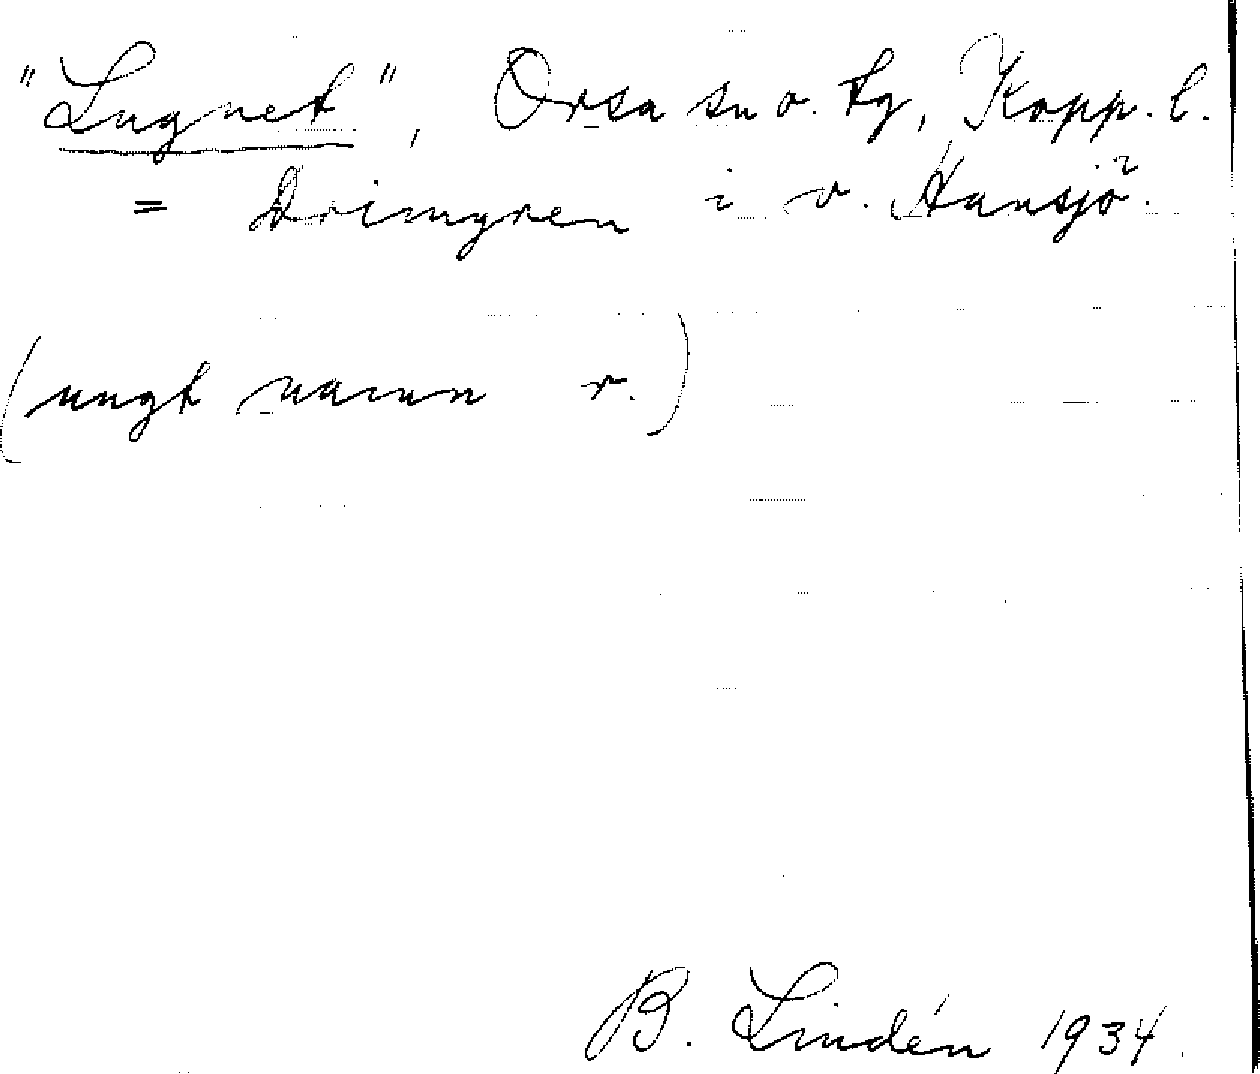 "Lugnet", Orsa sn o. tg, Kopp. l.
= Drimyren i v. Hansjö.
(ungt namn r.)
B. Lindén 1934.